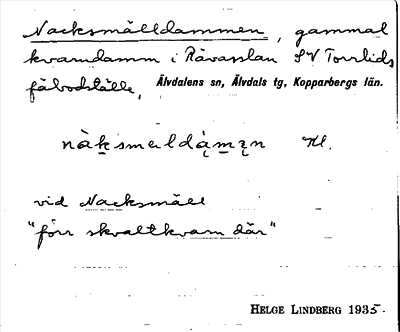 Nacksmälldammen, gammal
kvarndamm i Råvasslan SV Torrlids
fäbodställe, Älvdalens sn, Älvdals tg, Kopparbergs län.
Kl.
vid Nacksmäll
"förr skvaltkvarn där"
HELGE LINDBERG 1935.